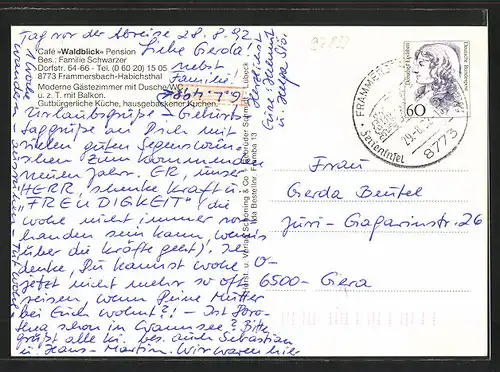 Tag vor der Abreise 28.8.92
Café »Waldblick« Pension
Bes.: Familie Schwarzer
Dorfstr. 64-66 - Tel. (0 60 20) 15 05
8773 Frammersbach-Habichsthal
Moderne Gästezimmer mit Dusche/WC
u. z. T. mit Balkon.
Gutbürgerliche Küche, hausgebackener Kuchen.
Liebe Gerda!
nebst
Familie!
Urlaubsgrüße - Geburts-
tagsgrüße an Dich mit
vielen guten Segenswün-
schen zum kommenden
neuen Jahr. ER, unser
HERR, schenke Kraft u.
"FREUDIGKEIT" (die
wohl nicht immer vor-
handen sein kann, wenn's
über die Kräfte geht). Ich
denke, Du kannst wohl
jetzt nicht mehr so oft
reisen, wenn Deine Mutter
bei Euch wohnt?! - Ist Doro-
thea schon in Wannsee? Bitte
grüßt alle lb. bes. auch Sebastian
u. Hans-Martin. Wir waren hier
Herzlichst
Eure
u. Helga
Deutsche Bundespost
60
8773
Frau
Gerda Beutel
Juri-Gagarinstr. 26
O-
6500-Gera